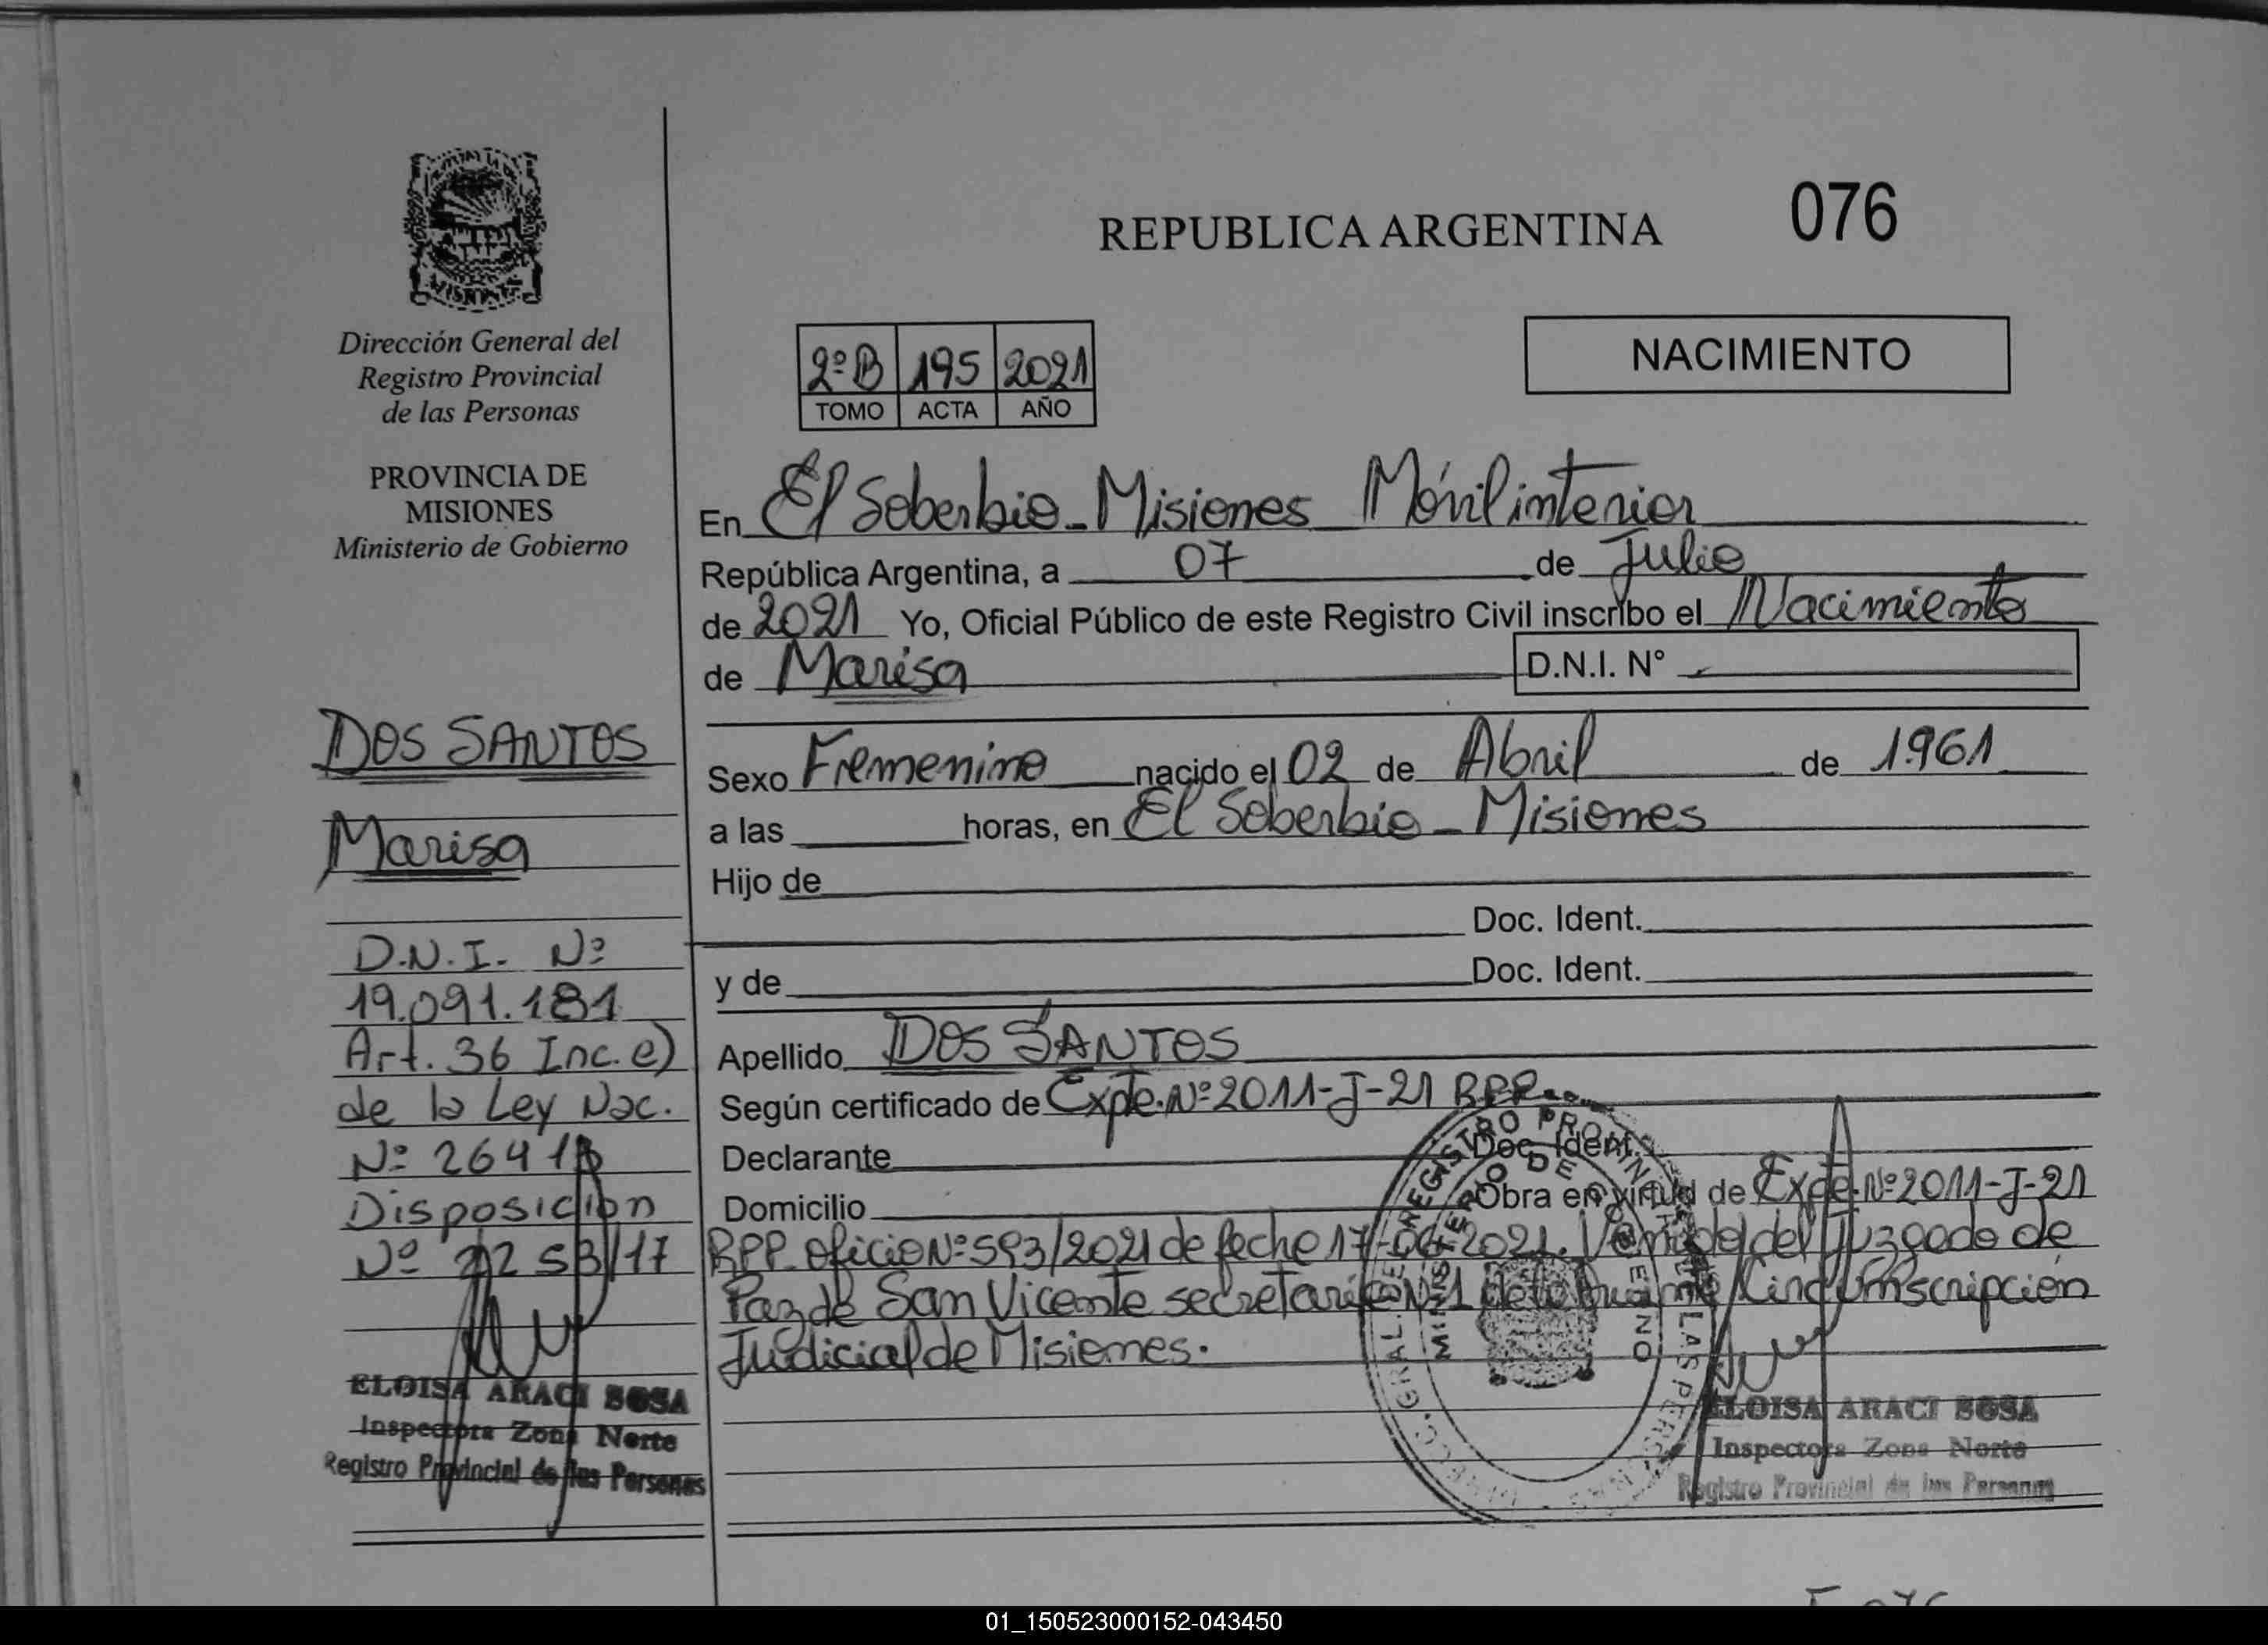 REPUBLICA ARGENTINA 076
Dirección General del
Registro Provincial
de las Personas
PROVINCIA DE
MISIONES
Ministerio de Gobierno
DOS SANTOS
Marisa
D.N.I. Nº
19.091.181
Art. 36 Inc. e)
de la Ley Nac.
Nº 26413
Disposición
Nº
ELOISA ARACI SOSA
Inspectora Zona Norte
Registro Provincial de las Personas
2º B 195 2021
TOMO ACTA AÑO
NACIMIENTO
En El Soberbio - Misiones Móvil interior
República Argentina, a 07 de Julio
de 2021 Yo, Oficial Público de este Registro Civil inscribo el Nacimiento
de Marisa D.N.I. N°
Sexo Femenino nacido el 02 de Abril de 1.961
a las horas, en El Soberbio - Misiones
Hijo de
Doc. Ident.
y de Doc. Ident.
Apellido DOS SANTOS
Según certificado de Expte. Nº 2011-J-21 RPP
Declarante Doc. Ident.
Domicilio Obra en virtud de Expte. Nº 2011-J-21
RPP oficio Nº 593/2021 de fecha 17-06-2021. del Juzgado de
Paz de San Vicente secretaría Nº 1 de la Circunscripción
Judicial de Misiones.
ELOISA ARACI SOSA
Inspectora Zona Norte
Registro Provincial de las Personas
01_150523000152-043450